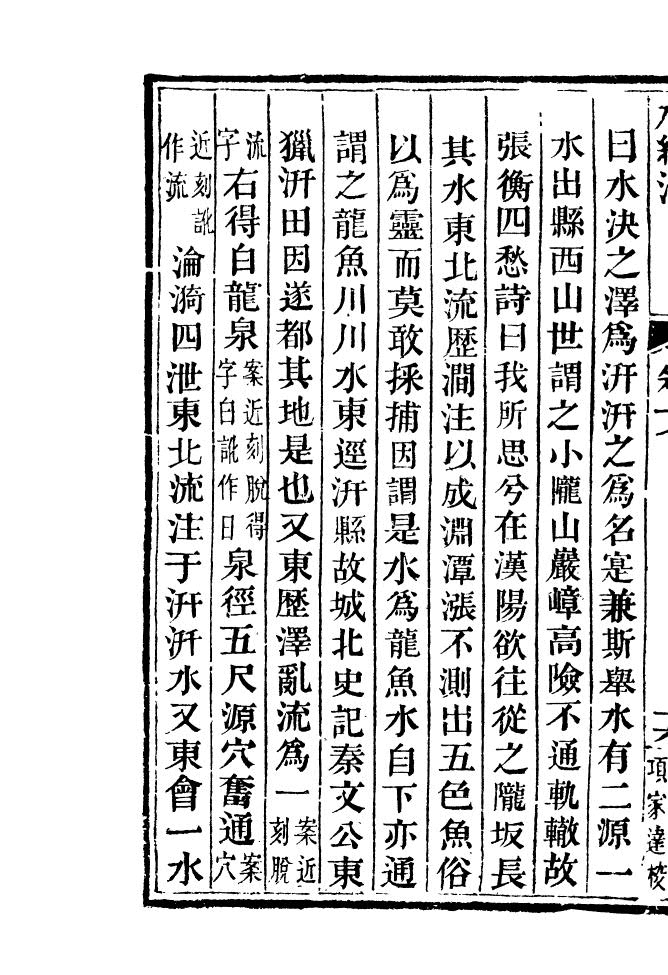 曰水決之澤爲汧汧之爲名寔兼斯舉水有二源一
水出縣西山世謂之小隴山巖嶂高險不通軌轍故
張衡四愁詩曰我所思兮在漢陽欲往從之隴坂長
其水東北流歷澗注以成淵潭漲不測出五色魚俗
以爲靈而莫敢採捕因謂是水爲龍魚水自下亦通
謂之龍魚川川水東逕汧縣故城北史記秦文公東
獵汧田因遂都其地是也又東歷澤亂流爲一案近刻脫
流字右得白龍泉案近刻脫得字白訛作日泉徑五尺源穴奮通案穴
近刻訛作流淪漪四泄東北流注于汧汧水又東會一水
項家達校